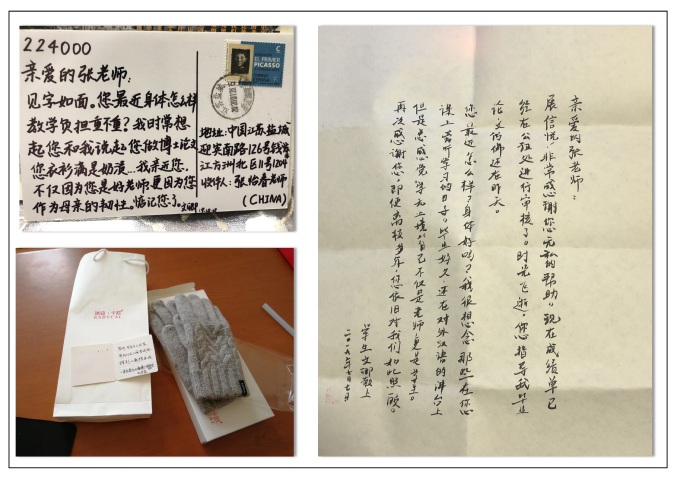 224000
亲爱的张老师：
见字如面。您最近身体怎么样
教学负担重不重？我时常想
起您和我说起您做博士论文
您衣衫满是奶渍…我亲近您，
不仅因为您是好老师更因为您
作为母亲的韧性。惦记您了。
EL PRIMER
PICASSO
地址：中国江苏盐城
迎宾南路126号钱江方洲北区11号1204
收件人：张怡春老师
(CHINA)
亲爱的张老师：
展信悦！非常感谢您无私的帮助。现在成绩单已
经在公证处进行审核了。时光飞逝，您指导我毕业
论文仿佛还在昨天。
您最近怎么样？身体好吗？我很想念那些在您
课上旁听学习的日子。毕业好久，还在对外汉语的讲台上
但是总感觉学无止境，自己不仅是老师，更是学生。
再次感谢您，即使离校多年，您依旧对我们如此照顾。
学生文卿敬上